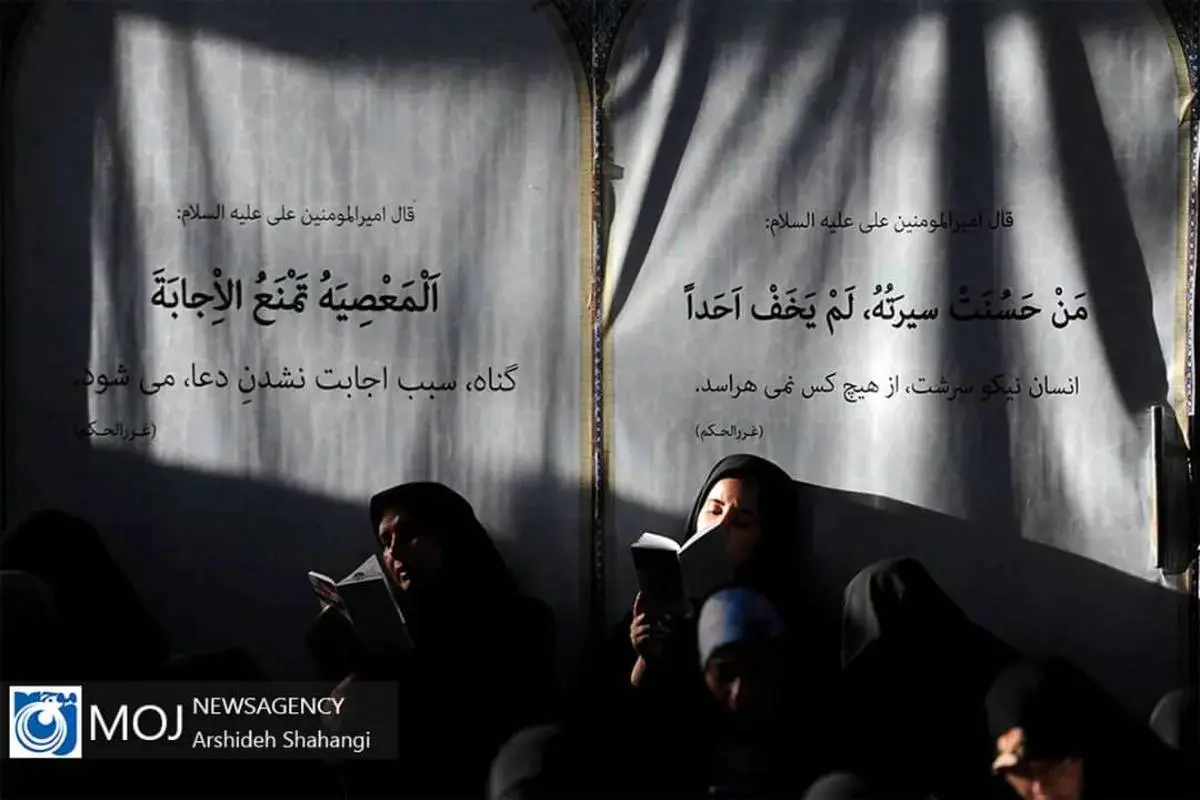 قال امیرالمومنین علی علیه السلام:
مَنْ حَسُنَتْ سیرَتُهُ، لَمْ یَخَفْ اَحَداً
انسان نیکو سرشت، از هیچ کس نمی هراسد.
(غررالحکم)
قال امیرالمومنین علی علیه السلام:
اَلْمَعْصِیَهُ تَمْنَعُ الْاِجابَةَ
گناه، سبب اجابت نشدنِ دعا، می شود.
(غررالحکم)
موج
MOJ
NEWSAGENCY
Arshideh Shahangi